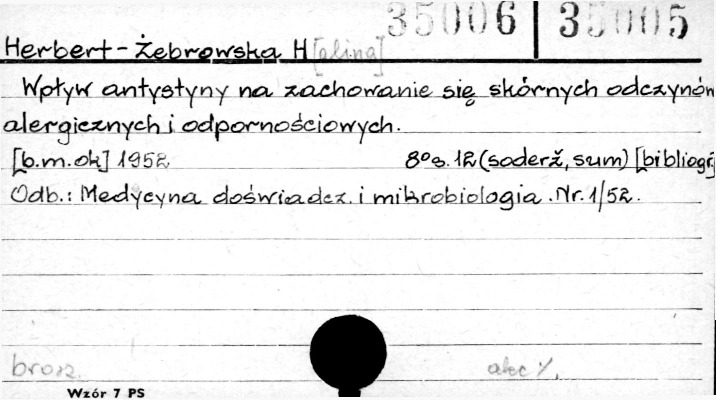 35006 35005
Herbert-Żebrowska H[alina]
Wpływ antystyny na zachowanie się skórnych odczynów
alergicznych i odpornościowych.
[b.m.ok] 1952 8° s. 12 (soderž, sum) [bibliogr]
Odb.: Medycyna doświadcz. i mikrobiologia. Nr. 1/52.
brosz.
Wzór 7 PS